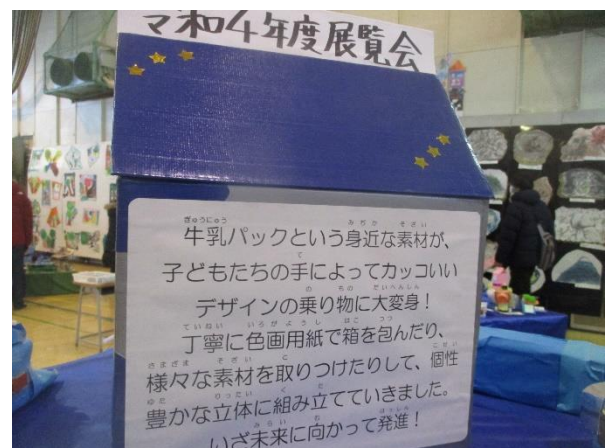 令和4年度展覧会
牛乳パックという身近な素材が、
子どもたちの手によってカッコいい
デザインの乗り物に大変身！
丁寧に色画用紙で箱を包んだり、
様々な素材を取りつけたりして、個性
豊かな立体に組み立てていきました。
いざ未来に向かって発進！